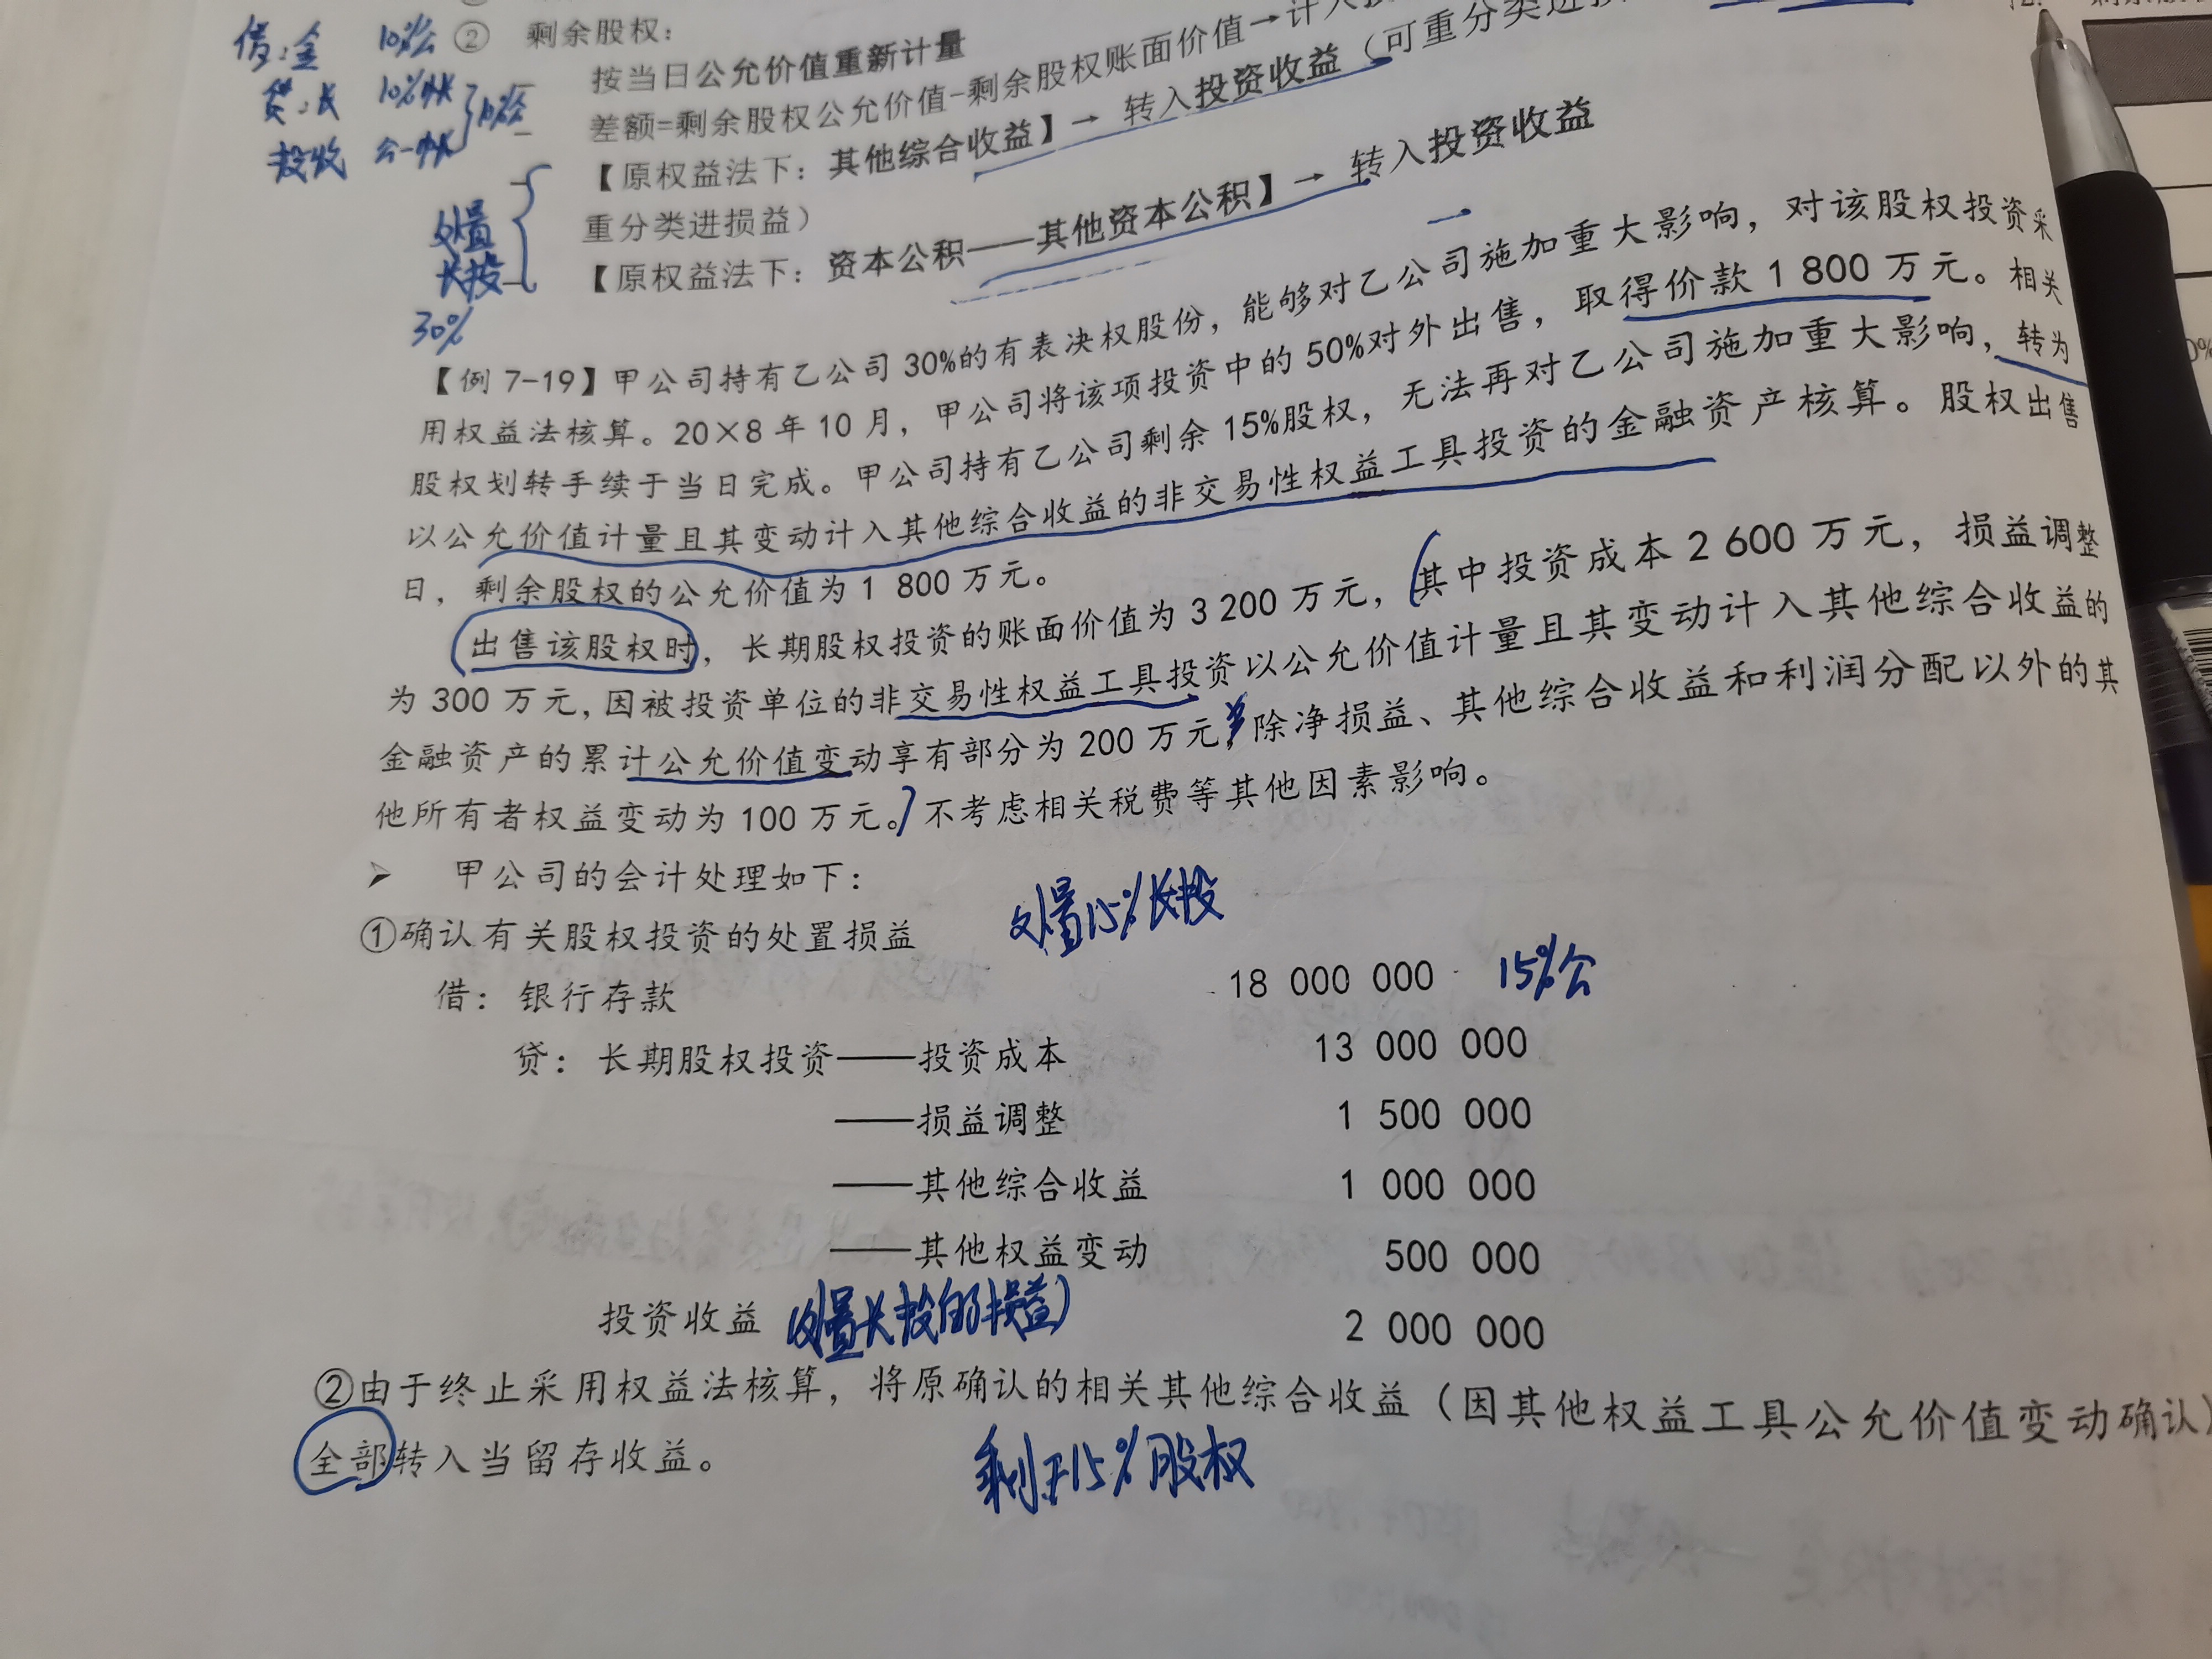 ② 剩余股权：
借：金 10%公
按当日公允价值重新计量
贷：长 10%账
差额=剩余股权公允价值-剩余股权账面价值→计入投
投收 公-账 10%公
【原权益法下：其他综合收益】→ 转入投资收益（可重分类进损
重分类进损益）
处置
长投
30%
【原权益法下：资本公积——其他资本公积】→ 转入投资收益
【例 7-19】甲公司持有乙公司 30%的有表决权股份，能够对乙公司施加重大影响，对该股权投资采
用权益法核算。20×8 年 10 月，甲公司将该项投资中的 50%对外出售，取得价款 1 800 万元。相关
股权划转手续于当日完成。甲公司持有乙公司剩余 15%股权，无法再对乙公司施加重大影响，转为
以公允价值计量且其变动计入其他综合收益的非交易性权益工具投资的金融资产核算。股权出售
日，剩余股权的公允价值为 1 800 万元。
出售该股权时，长期股权投资的账面价值为 3 200 万元，其中投资成本 2 600 万元，损益调整
为 300 万元，因被投资单位的非交易性权益工具投资以公允价值计量且其变动计入其他综合收益的
金融资产的累计公允价值变动享有部分为 200 万元，除净损益、其他综合收益和利润分配以外的其
他所有者权益变动为 100 万元。不考虑相关税费等其他因素影响。
➢ 甲公司的会计处理如下：
①确认有关股权投资的处置损益 处置15%长投
借：银行存款 18 000 000 15%公
贷：长期股权投资——投资成本 13 000 000
——损益调整 1 500 000
——其他综合收益 1 000 000
——其他权益变动 500 000
投资收益 (处置长投的损益) 2 000 000
②由于终止采用权益法核算，将原确认的相关其他综合收益（因其他权益工具公允价值变动确认）
全部转入当留存收益。 剩下15%股权